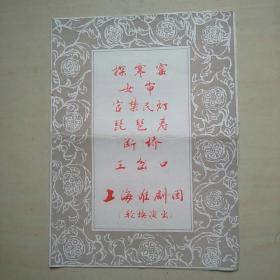 探寒窑
女审
官禁民灯
琵琶寿
断桥
三岔口
上海淮剧团
(轮换演出)